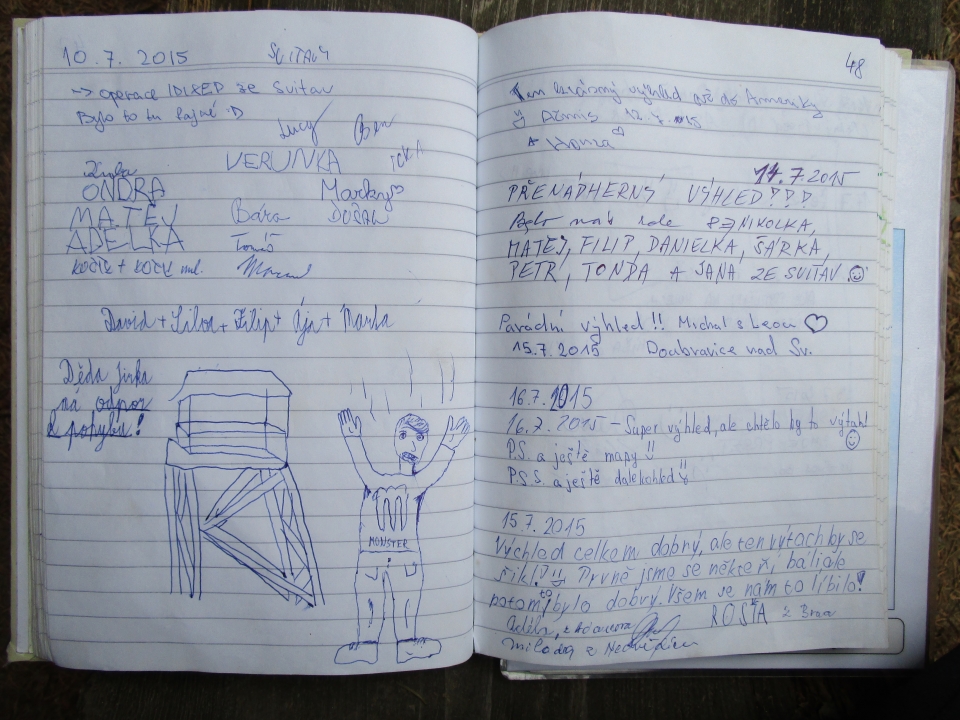 10.7.2015 SVITAVY
→ operace se Svitav
Bylo to tu fajné :D
Lucy Ben
VERUNKA
ONDRA Marky♡
MATĚJ Bára DUŠAN
ADÉLKA Tomáš
KOČÍK + KOČÍK ml.
David + + Filip + Ája +
Děda Jirka
má odpor
k pohybu!
MONSTER
48
Ten krásný výhled až do Ameriky
14.7.2015
PŘENÁDHERNÝ VÝHLED???
Bylo nás zde 8 NIKOLKA,
MATĚJ, FILIP, DANIELKA, ŠÁRKA,
PETR, TONDA A JANA ZE SVITAV
Parádní výhled!! Michal s Leou ♡
15.7.2015 Doubravice nad Sv.
16.7.2015
16.7.2015 – Super výhled, ale chtělo by to výtah!
P.S. a ještě mapy!!
P.S.S. a ještě dalekohled!!
15.7.2015
Výhled celkom dobrý, ale ten výtach by se
šikl!? Prvně jsme se někteří báli ale
potom to bylo dobrý. Všem se nám to líbilo!
ROSŤA z Brna